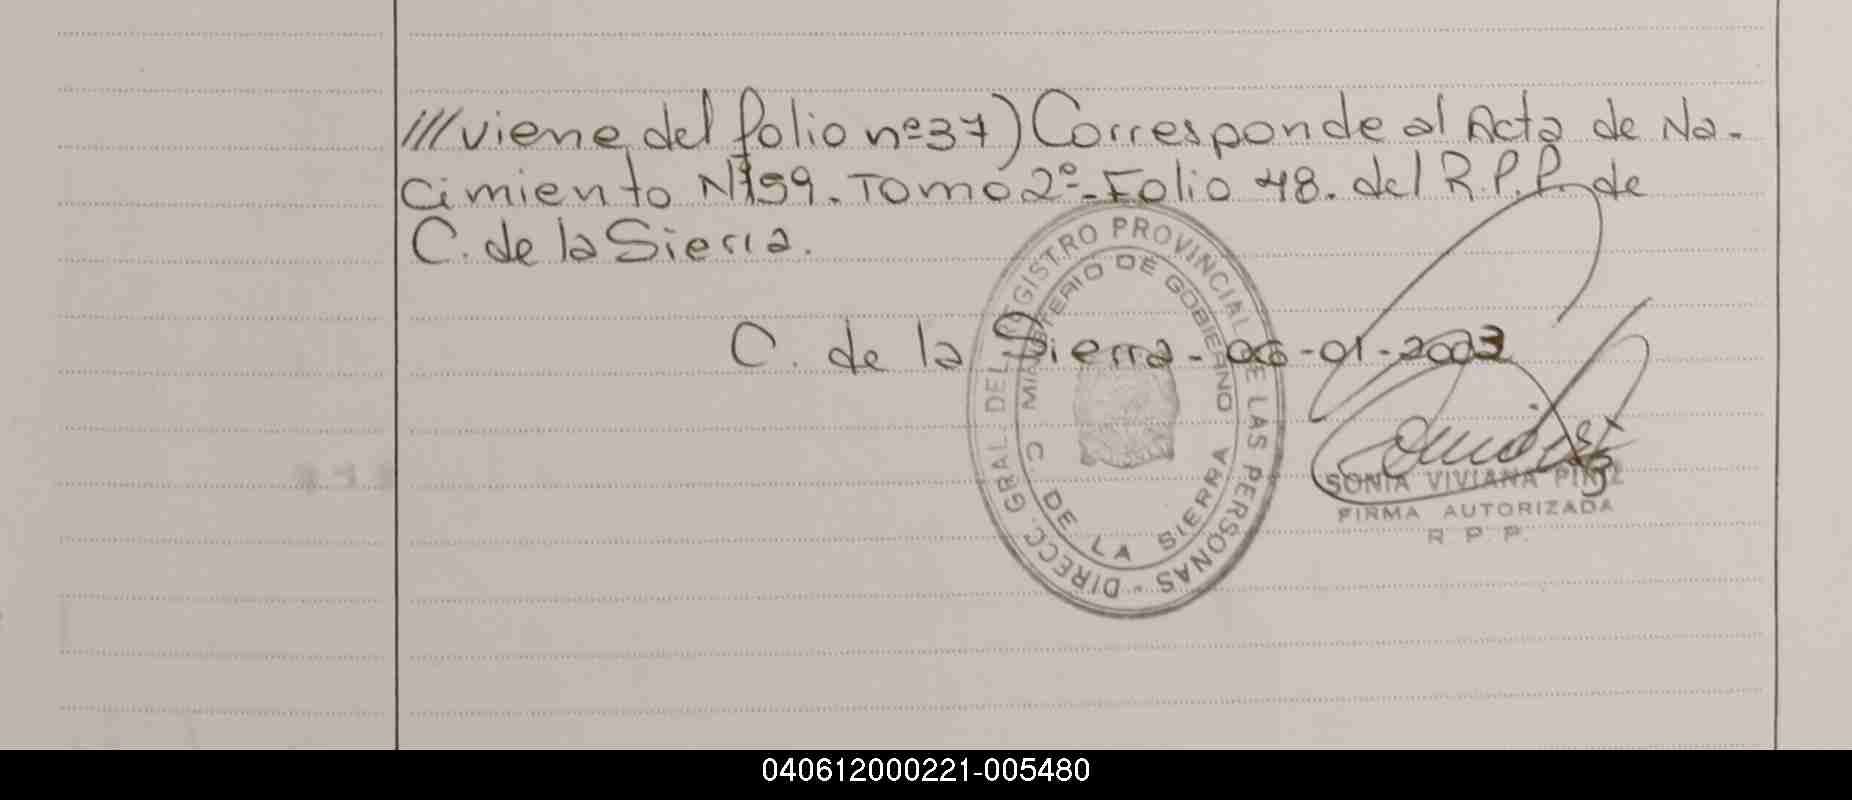 ///viene del folio nº37) Corresponde al Acta de Na-
cimiento Nº159. Tomo 2º-Folio 48. del R.P.P. de
C. de la Sierra.
C. de la Sierra - 06-01-2003
DIRECC. GRAL. DEL REGISTRO PROVINCIAL DE LAS PERSONAS -
MINISTERIO DE GOBIERNO
C. DE LA SIERRA
SONIA VIVIANA
FIRMA AUTORIZADA
R P P.
040612000221-005480